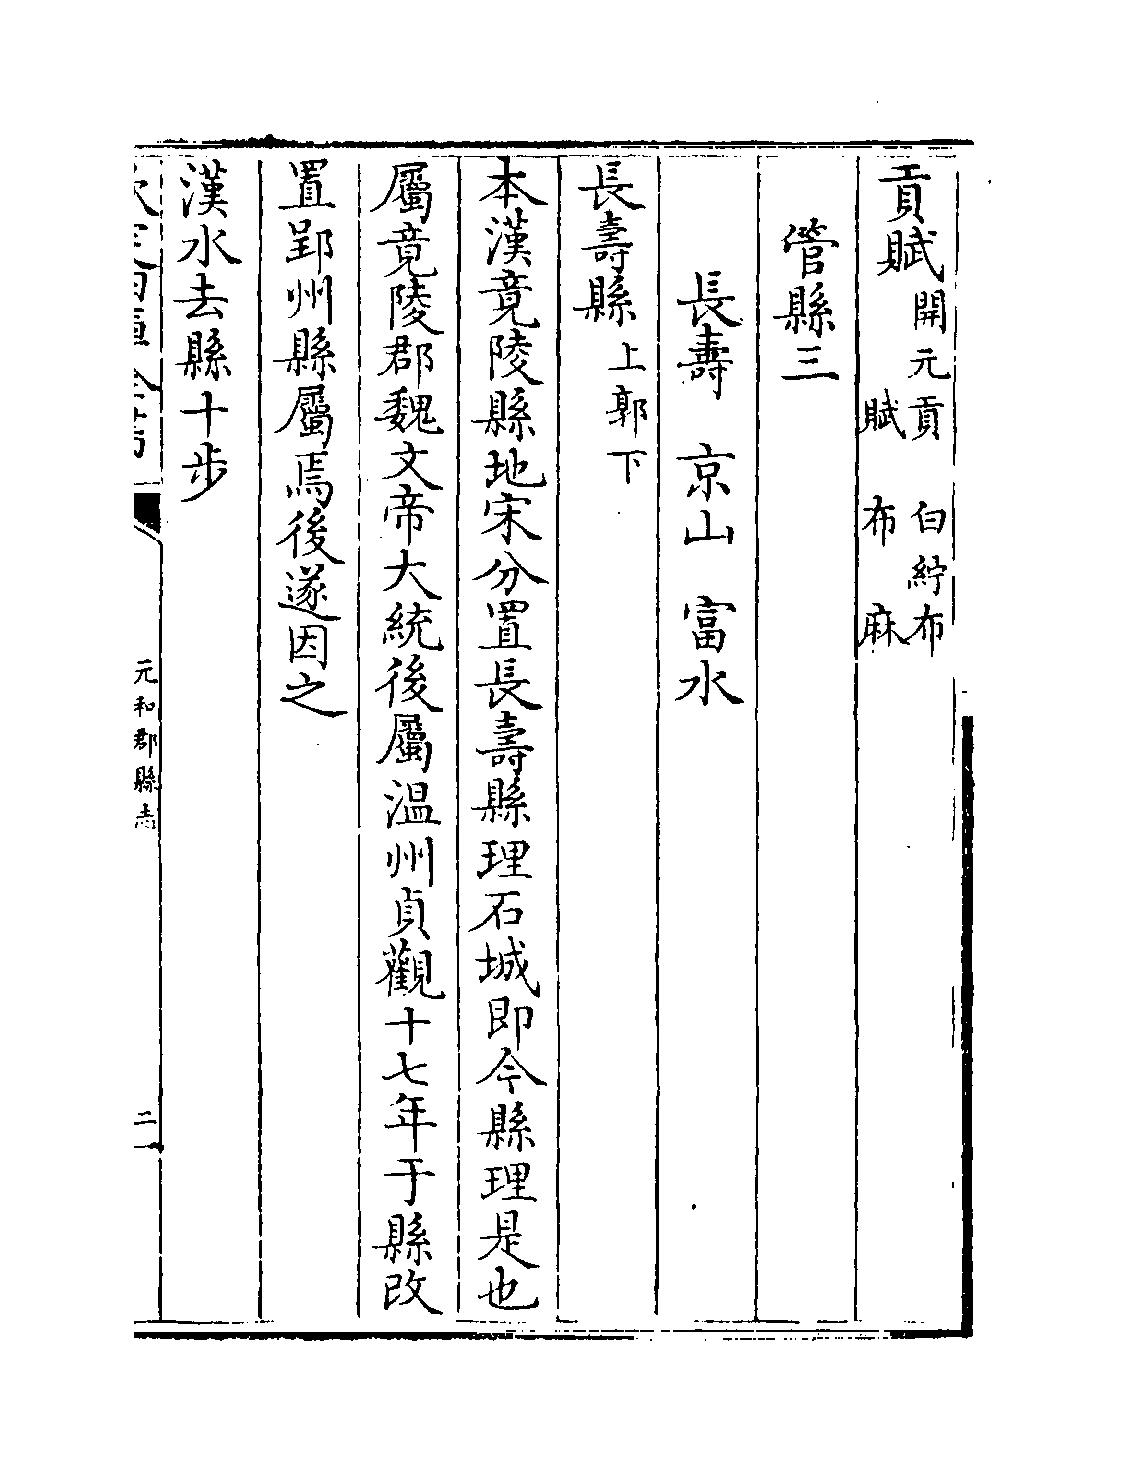 貢賦開元貢 白紵布
賦 布 麻
管縣三
長壽 京山 富水
長壽縣上郭下
本漢竟陵縣地宋分置長壽縣理石城即今縣理是也
屬竟陵郡魏文帝大統後屬温州貞觀十七年于縣改
置郢州縣屬焉後遂因之
漢水去縣十步
元和郡縣志
二